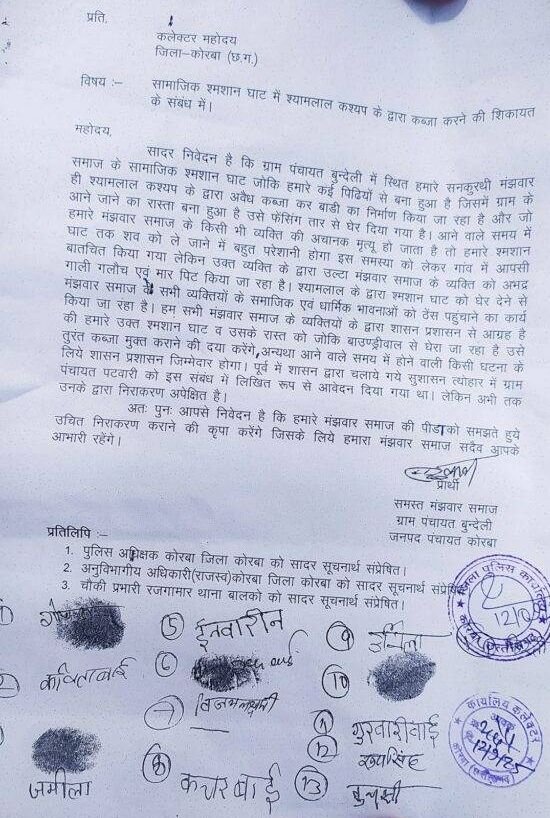 प्रति,
कलेक्टर महोदय
जिला–कोरबा (छ.ग.)
विषय :– सामाजिक श्मशान घाट में श्यामलाल कश्यप के द्वारा कब्जा करने की शिकायत
के संबंध में।
महोदय,
सादर निवेदन है कि ग्राम पंचायत बुन्देली में स्थित हमारे सनकुरथी मंझवार
समाज के सामाजिक श्मशान घाट जोकि हमारे कई पिढियों से बना हुआ है जिसमें ग्राम के
ही श्यामलाल कश्यप के द्वारा अवैध कब्जा कर बाडी का निर्माण किया जा रहा है और जो
आने जाने का रास्ता बना हुआ है उसे फेंसिंग तार से घेर दिया गया है। आने वाले समय में
हमारे मंझवार समाज के किसी भी व्यक्ति की अचानक मृत्यु हो जाता है तो हमारे श्मशान
घाट तक शव को ले जाने में बहुत परेशानी होगा इस समस्या को लेकर गांव में आपसी
बातचित किया गया लेकिन उक्त व्यक्ति के द्वारा उल्टा मंझवार समाज के व्यक्ति को अभद्र
गाली गलौच एवं मार पिट किया जा रहा है। श्यामलाल के द्वारा श्मशान घाट को घेर देने से
मंझवार समाज के सभी व्यक्तियों के सामाजिक एवं धार्मिक भावनाओं को ठेंस पहुचाने का कार्य
किया जा रहा है। हम सभी मंझवार समाज के व्यक्तियों के द्वारा शासन प्रशासन से आग्रह है
की हमारे उक्त श्मशान घाट व उसके रास्त को जोकि बाउण्ड्रीवाल से घेरा जा रहा है उसे
तुरंत कब्जा मुक्त कराने की दया करेंगे, अन्यथा आने वाले समय में होने वाली किसी घटना के
लिये शासन प्रशासन जिम्मेदार होगा। पूर्व में शासन द्वारा चलाये गये सुशासन त्योहार में ग्राम
पंचायत पटवारी को इस संबंध में लिखित रूप से आवेदन दिया गया था। लेकिन अभी तक
उनके द्वारा निराकरण अपेक्षित है।
अतः पुनः आपसे निवेदन है कि हमारे मंझवार समाज की पीडा को समझते हुये
उचित निराकरण कराने की कृपा करेंगे जिसके लिये हमारा मंझवार समाज सदैव आपके
आभारी रहेंगे।
प्रार्थी
समस्त मंझवार समाज
ग्राम पंचायत बुन्देली
जनपद पंचायत कोरबा
प्रतिलिपि :–
1. पुलिस अधिक्षक कोरबा जिला कोरबा को सादर सूचनार्थ संप्रेषित।
2. अनुविभागीय अधिकारी(राजस्व)कोरबा जिला कोरबा को सादर सूचनार्थ संप्रेषित।
3. चौकी प्रभारी रजगामार थाना बालको को सादर सूचनार्थ संप्रेषित।
जिला पुलिस कार्यालय
कोरबा (छत्तीसगढ़)
1
5 ईतवारीन
9 उर्मिला
2 कविता बाई
6
10
7
11 गुरवारी बाई
12 रूपसिंह
जमीला
8 कचरा बाई
13
कार्यालय कलेक्टर
कोरबा (छत्तीसगढ़)